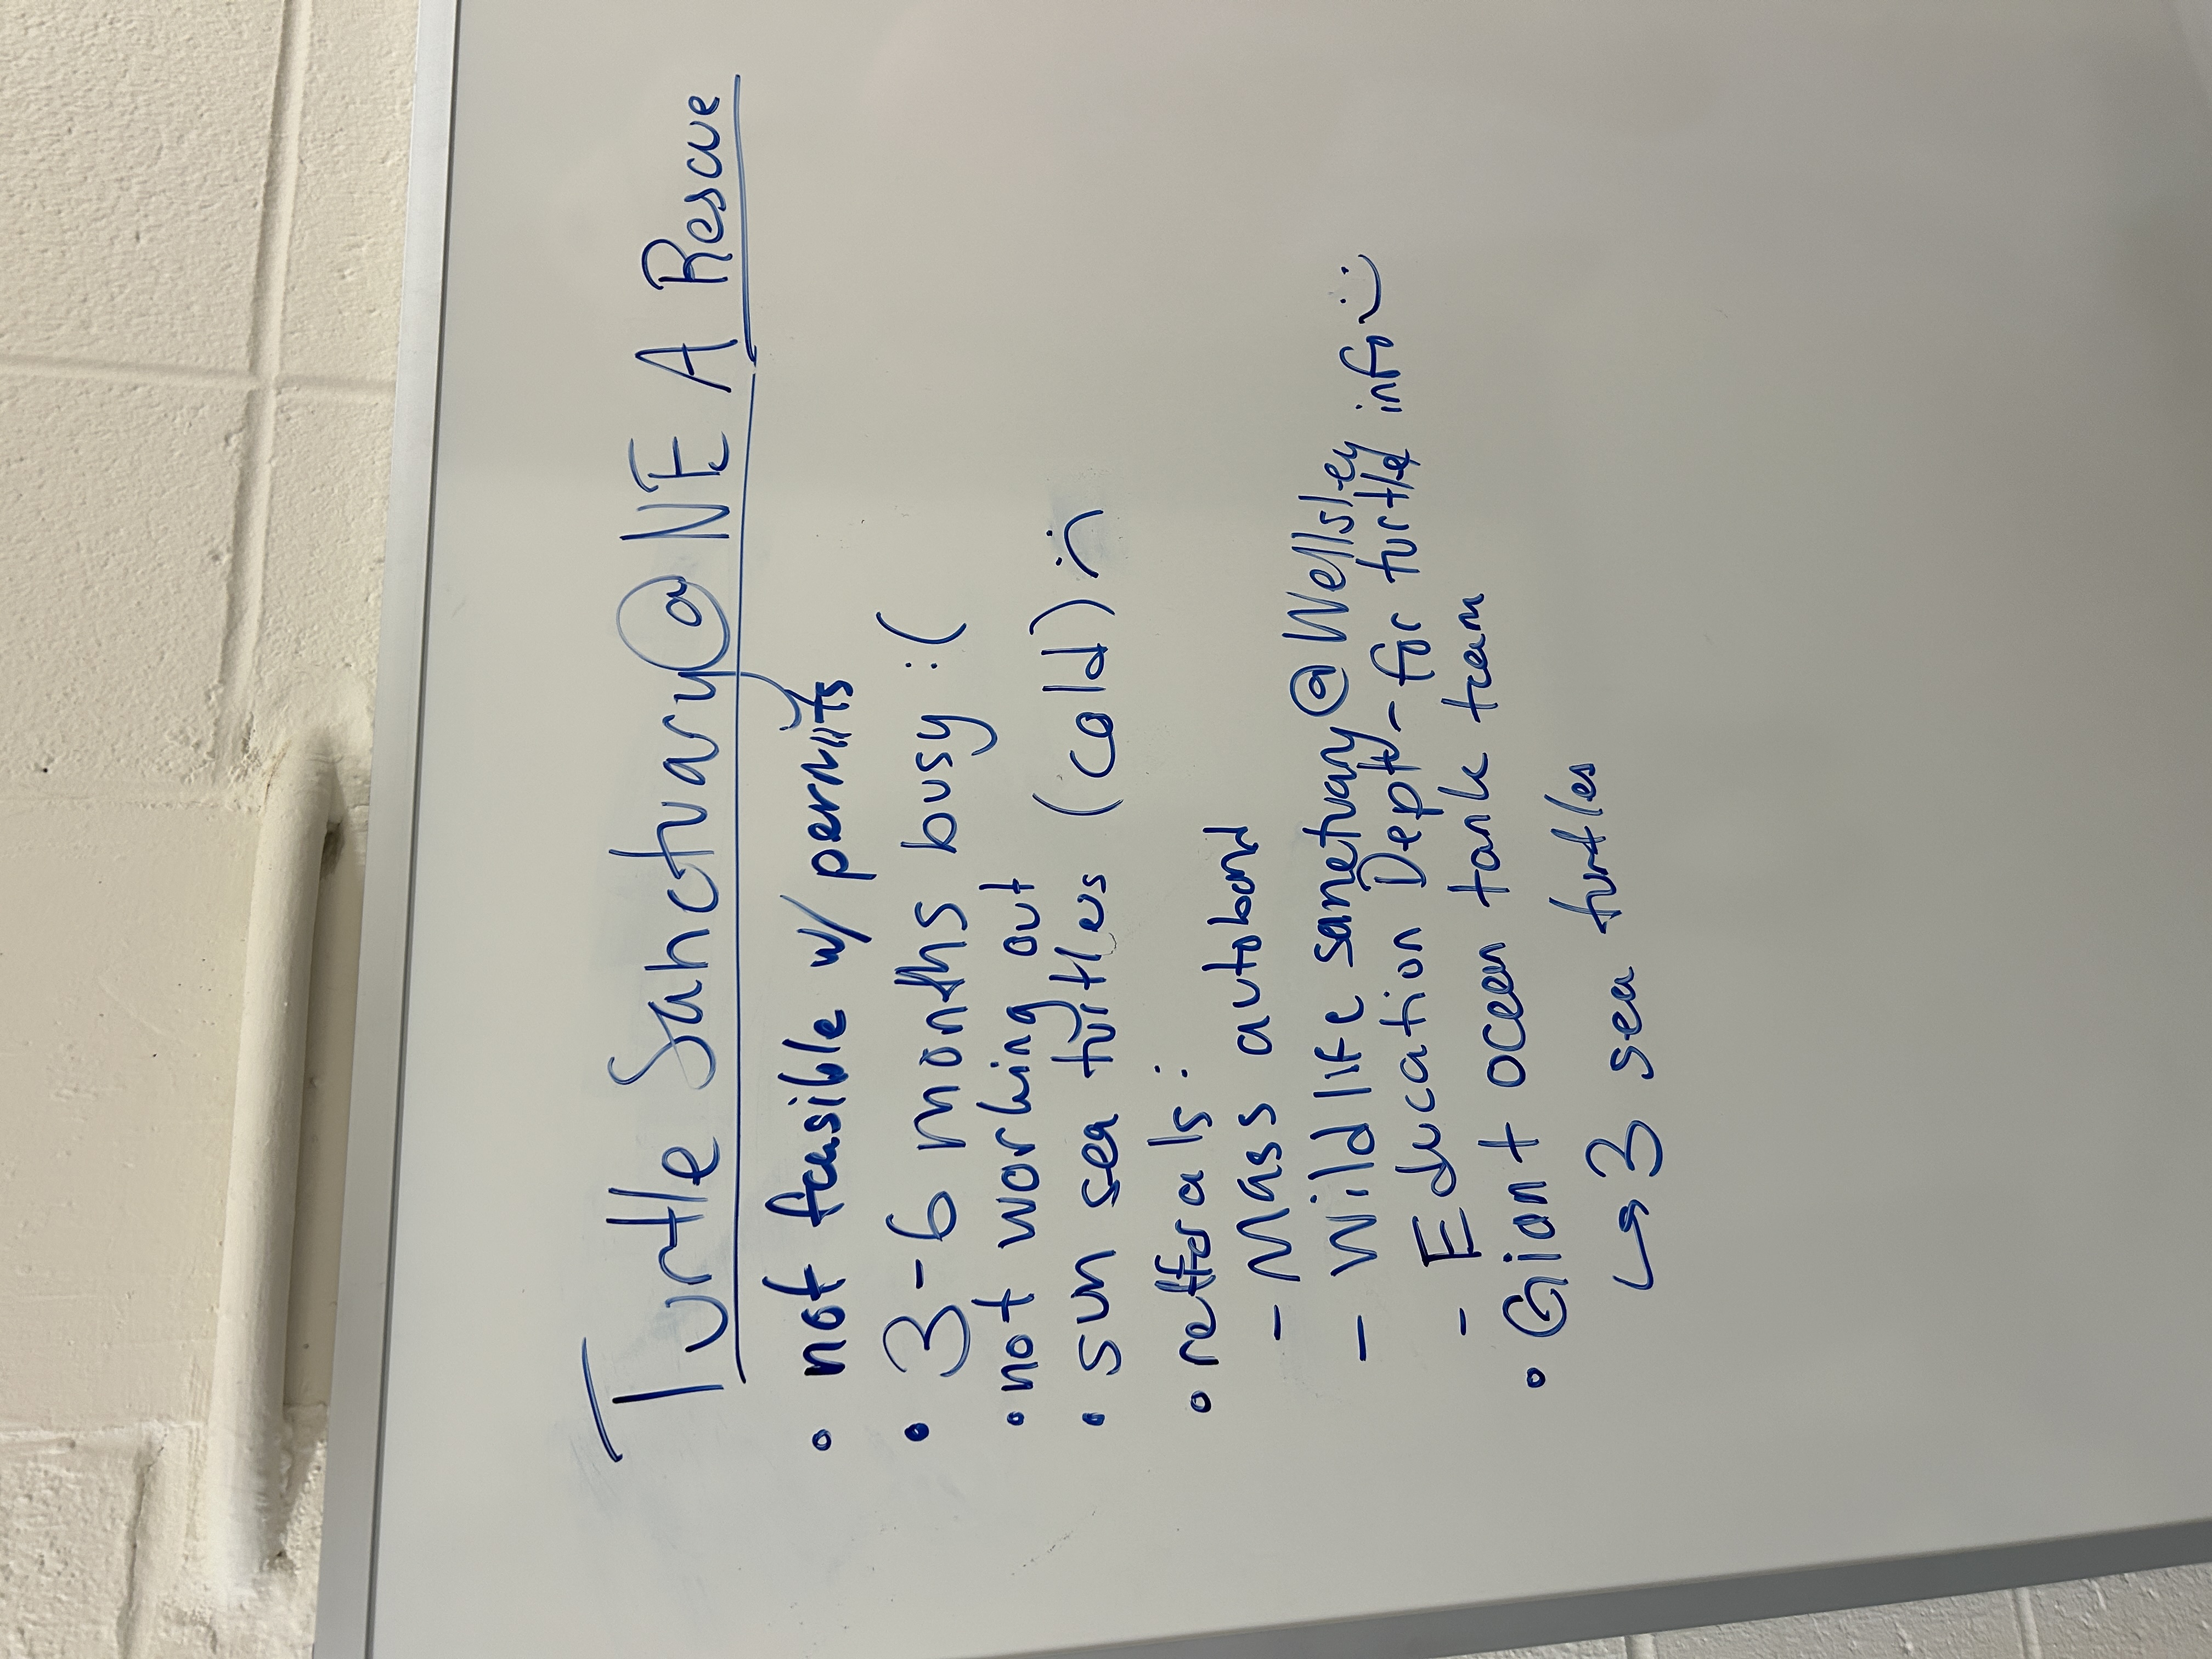 Turtle Sanctuary @ NE A Rescue
• not feasible w/ permits
• 3-6 months busy :(
• not working out
• sun sea turtles (cold) :(
• refferals:
- Mass autobond
- Wildlife sanctuary @ Wellsley
- Education Dept - for turtle info :)
• Giant ocean tank team
↳ 3 sea turtles